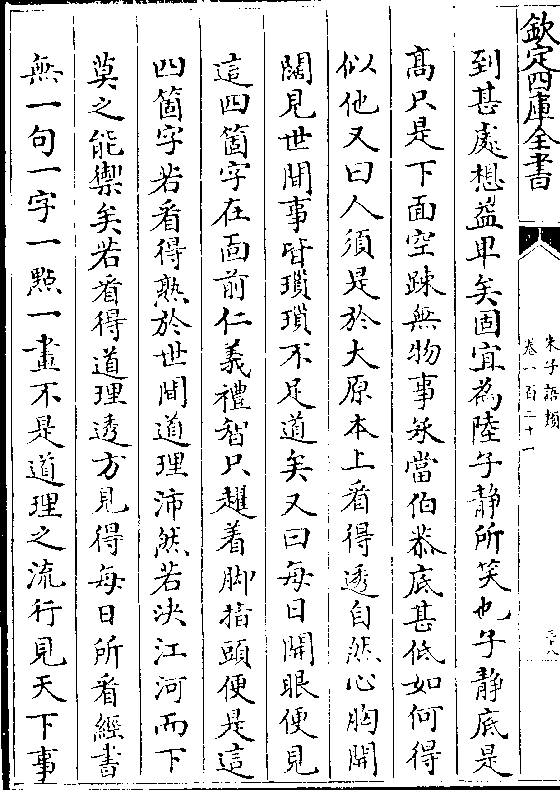 欽定四庫全書
朱子語類
卷一百二十一
到甚處想益卑矣固宜為陸子靜所笑也子靜底是
高只是下面空踈無物事承當伯恭底甚低如何得
似他又曰人須是於大原本上看得透自然心胸開
闊見世間事皆瑣瑣不足道矣又曰每日開眼便見
這四箇字在面前仁義禮智只趯着脚指頭便是這
四箇字若看得熟於世間道理沛然若决江河而下
莫之能禦矣若看得道理透方見得每日所看經書
無一句一字一點一畫不是道理之流行見天下事